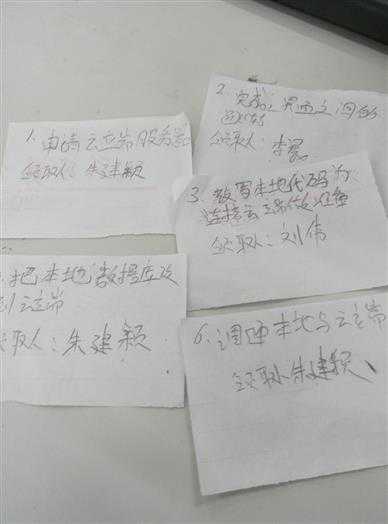 1. 申请云端服务器
领取人: 朱建颖
2. 完成: 界面之间的
领取人: 李
3. 数写本地代码为
连接云端做准备
领取人: 刘伟
把本地数据库改
到云端
领取人: 朱建颖
6. 调通本地与云端
领取人: 朱建颖